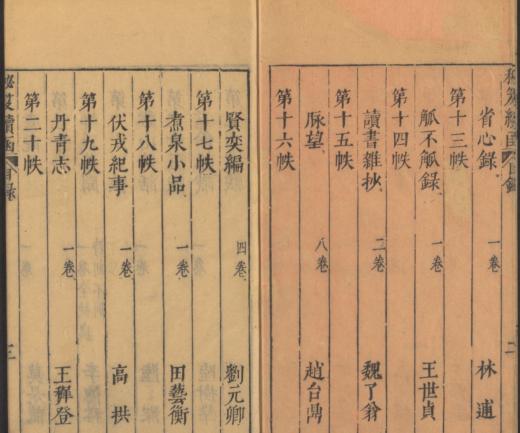 省心錄 一卷 林逋
第十三帙
觚不觚錄 一卷 王世貞
第十四帙
讀書雜抄 二卷 魏了翁
第十五帙
脉望 八卷 趙台鼎
第十六帙
賢奕編 四卷 劉元卿
第十七帙
煮泉小品 一卷 田藝衡
第十八帙
伏戎紀事 一卷 高拱
第十九帙
丹青志 一卷 王穉登
第二十帙
祕笈續函 目錄 三